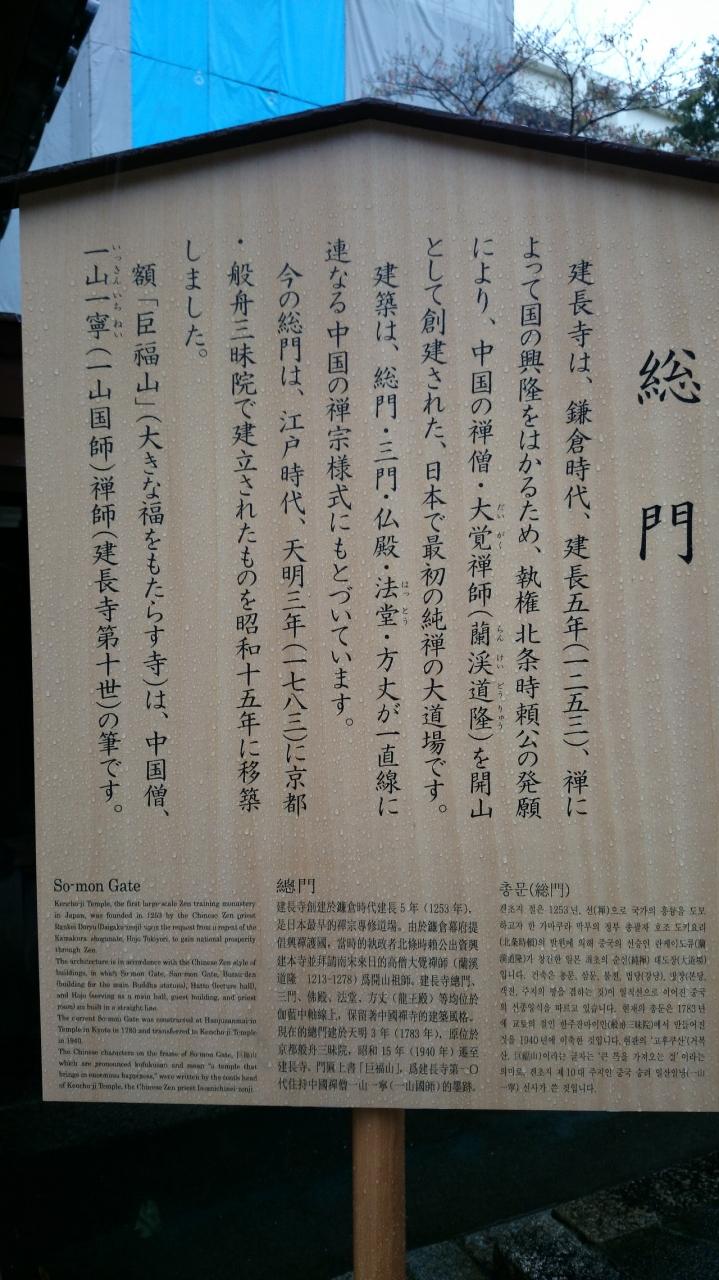 総門
建長寺は、鎌倉時代、建長五年(一二五三)、禅に
よって国の興隆をはかるため、執権 北条時頼公の発願
により、中国の禅僧・大覚禅師(蘭渓道隆)を開山
として創建された、日本で最初の純禅の大道場です。
建築は、総門・三門・仏殿・法堂・方丈が一直線に
連なる中国の禅宗様式にもとづいています。
今の総門は、江戸時代、天明三年(一七八三)に京都
・般舟三昧院で建立されたものを昭和十五年に移築
しました。
額「巨福山」(大きな福をもたらす寺)は、中国僧、
一山一寧(一山国師)禅師(建長寺第十世)の筆です。
So-mon Gate
Kencho-ji Temple, the first large-scale Zen training monastery
in Japan, was founded in 1253 by the Chinese Zen priest
Rankei Doryu (Daigaku zenji) upon the request from a regent of the
Kamakura shogunate, Hojo Tokiyori, to gain national prosperity
through Zen.
The architecture is in accordance with the Chinese Zen style of
buildings, in which So-mon Gate, San-mon Gate, Butsu-den
(building for the main Buddha statues), Hatto (lecture hall),
and Hojo (serving as a main hall, guest building, and priest
room) are built in a straight line.
The current So-mon Gate was constructed at Hanjuzanmai-in
Temple in Kyoto in 1783 and transferred to Kencho-ji Temple
in 1940.
The Chinese characters on the frame of So-mon Gate, 巨福山
which are pronounced kofukusan and mean "a temple that
brings in enormous happiness," were written by the tenth head
of Kencho-ji Temple, the Chinese Zen priest Issanichinei-zenji.
總門
建長寺創建於鎌倉時代建長5年(1253年),
是日本最早的禪宗專修道場。由於鎌倉幕府提
倡興禪護國,當時的執政者北條時賴公出資興
建本寺並拜請南宋來日的高僧大覺禪師(蘭溪
道隆 1213-1278)爲開山祖師。建長寺總門、
三門、佛殿、法堂、方丈(龍王殿)等均位於
伽藍中軸線上,保留著中國禪寺的建築風格。
現在的總門建於天明3年(1783年),原位於
京都般舟三昧院,昭和15年(1940年)遷至
建長寺。門匾上書「巨福山」,爲建長寺第一〇
代住持中國禪僧一山一寧(一山國師)的墨跡。
총문(総門)
겐초지 절은 1253년, 선(禪)으로 국가의 흥륭을 도모
하고자 한 가마쿠라 막부의 정부 총괄자 호조 도키요리
(北条時頼)의 발원에 의해 중국의 선승인 란케이도류(蘭
溪道隆)가 창건한 일본 최초의 순선(純禪) 대도장(大道場)
입니다. 건축은 총문, 삼문, 불전, 법당(강당), 방장(본당,
객전, 주지의 방을 겸하는 것)이 일직선으로 이어진 중국
의 선종양식을 따르고 있습니다. 현재의 총문은 1783년
에 교토의 절인 한주잔마이인(般舟三昧院)에서 만들어진
것을 1940년에 이축한 것입니다. 현판의 '고후쿠산'(거복
산, 巨福山)이라는 글자는 '큰 복을 가져오는 절'이라는
의미로, 겐초지 제10대 주지인 중국 승려 일산일녕(一山
一寧) 선사가 쓴 것입니다.